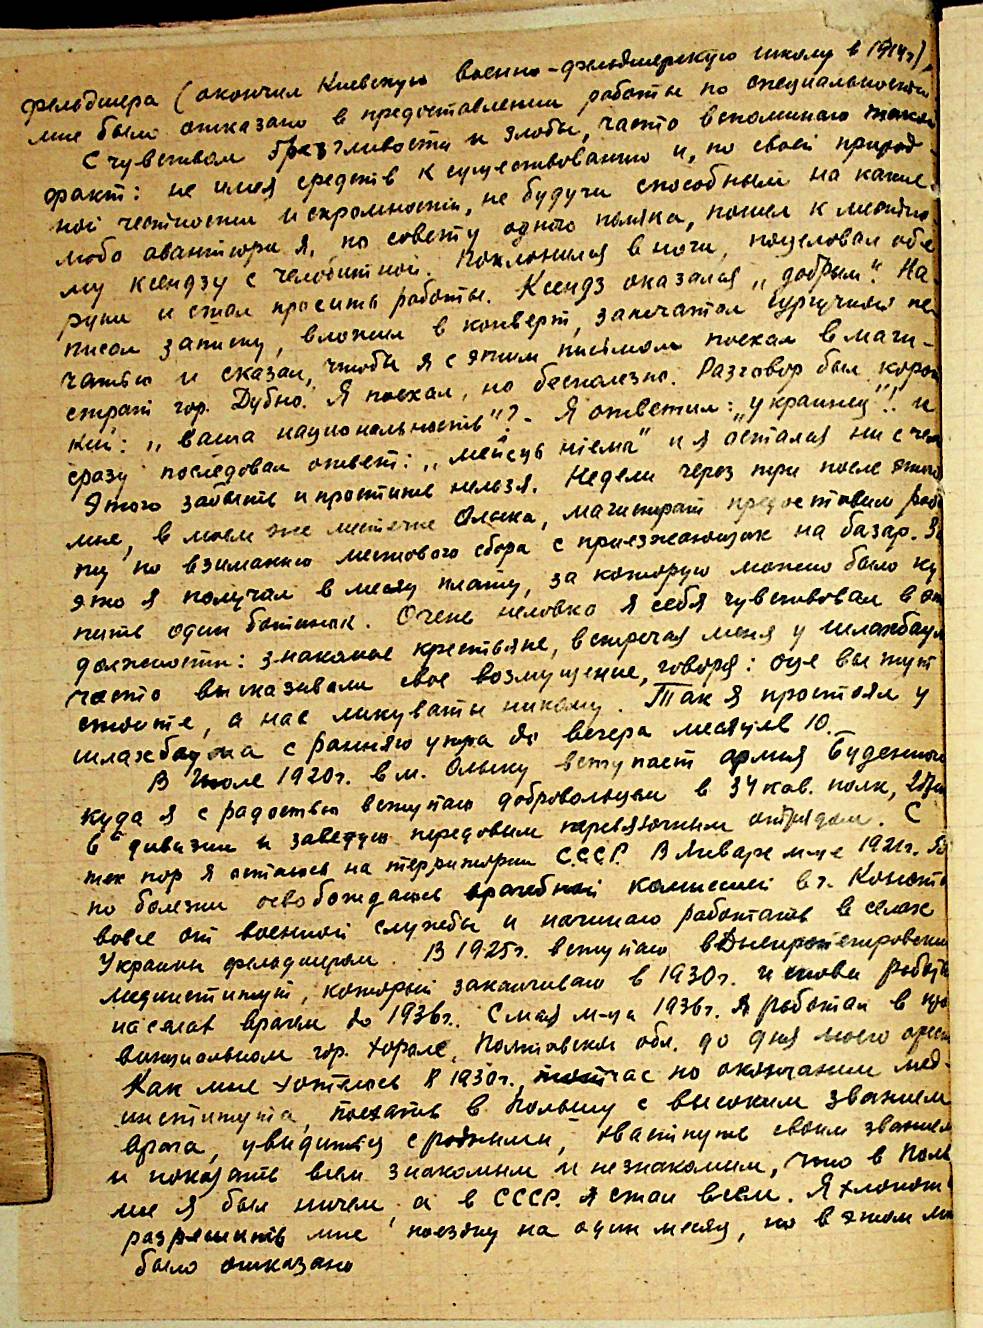 фельдшера (окончил Киевскую военно-фельдшерскую школу в 1914г),
мне было отказано в предоставлении работы по специальности
С чувством брезгливости и злобы, часто вспоминаю такой
факт: не имея средств к существованию и, по своей природ-
ной честности и скромности, не будучи способным на какие
либо авантюры я, по совету одного поляка, пошел к местно
му ксендзу с челобитной. Поклонился в ноги, поцеловал обе
руки и стал просить работы. Ксендз оказался „добрым“. На
писал записку, вложил в конверт, запечатал сургучной пе
чатью и сказал, чтобы я с этим письмом поехал в маги-
страт гор. Дубно. Я поехал, но бесполезно. Разговор был корот
кий: „ваша национальность“? - Я ответил: „украинец“! и
сразу последовал ответ: „мейсць ніема“ и я остался ни с чем
Этого забыть и простить нельзя. Недели через три после этого
мне, в моем же местечке Олыка, магистрат предоставил рабо
ту по взиманию мостового сбора с приезжающих на базар. За
это я получал в месяц плату, за которую можно было ку
пить один ботинок. Очень неловко я себя чувствовал в этой
должности: знакомые крестьяне, встречая меня у шлахбаума
часто высказывали свое возмущение, говоря: оце вы тут
стоите, а нас ликуваты никому. Так я простоял у
шлахбаума с ранняго утра до вечера месяцев 10.
В Июле 1920г. в м. Олыку вступает армия Буденного
куда я с радостью вступаю добровольцем в 34 кав. полк,
6й дивизии и заведую передовым перевязочным отрядом. С
тех пор я остаюсь на территории СССР. В Январе м-це 1921г. я
по болезни освобождаюсь врачебной комиссией в г. Конотоп
вовсе от военной службы и начинаю работать в селах
Украины фельдшером. В 1925г. вступаю в Днепропетровский
мединститут, который заканчиваю в 1930г. и снова работаю
на селах врачем до 1936г. С мая м-ца 1936г. я работал в про
винциальном гор. Хороле, Полтавской обл. до дня моего арест
Как мне хотелось в 1930г., тотчас по окончании мед-
института, поехать в Польшу с высоким званием
врача, увидиться с родными, хвастнуть своим званием
и показать всем знакомым и незнакомым, что в Поль
ше я был ничем а в СССР. я стал всем. Я хлопотал
разрешить мне поездку на один месяц, но в этом мне
было отказано